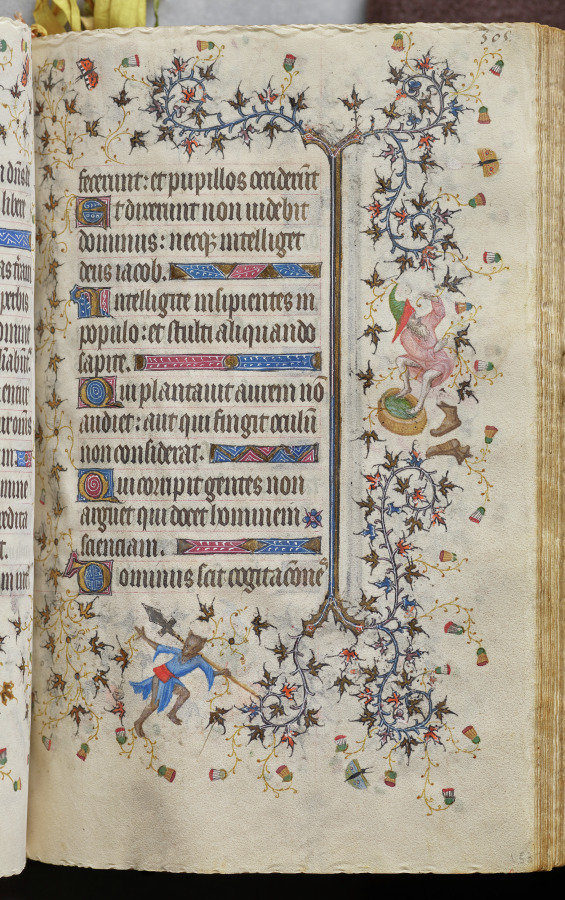 305
fecerunt: et pupillos occiderūt
Et dixerunt non uidebit
dominus: necq intelliget
deus iacob.
Intelligite insipientes in
populo: et stulti aliquando
sapite.
Qui plantauit aurem nō
audiet: aut qui fingit oculū
non considerat.
Qui corripit gentes non
arguet qui docet hominem
scienciam.
Dominus scit cogitacōnes